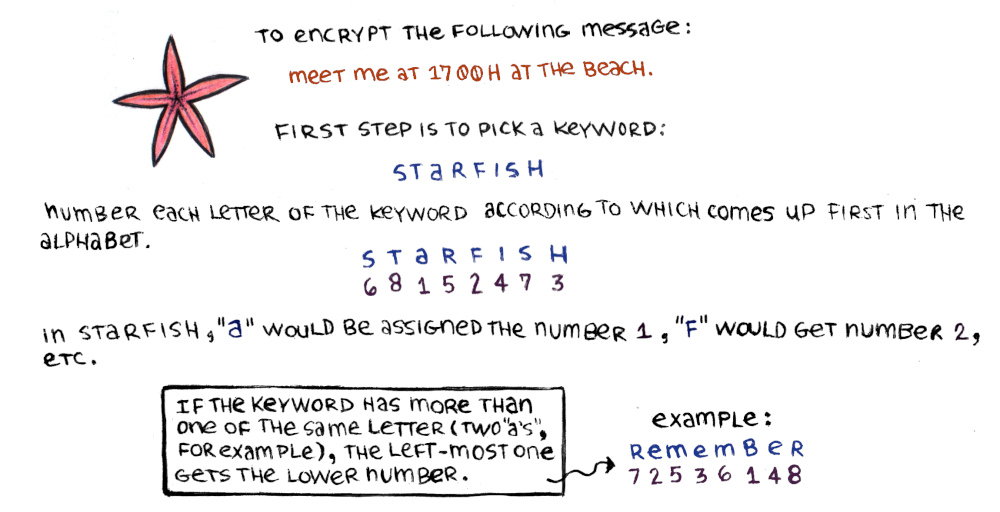 TO ENCRYPT THE FOLLOWING MESSAGE:
MEET ME AT 1700H AT THE BEACH.
FIRST STEP IS TO PICK A KEYWORD:
STARFISH
NUMBER EACH LETTER OF THE KEYWORD ACCORDING TO WHICH COMES UP FIRST IN THE
ALPHABET.
S T A R F I S H
6 8 1 5 2 4 7 3
IN STARFISH, "A" WOULD BE ASSIGNED THE NUMBER 1, "F" WOULD GET NUMBER 2,
ETC.
IF THE KEYWORD HAS MORE THAN
ONE OF THE SAME LETTER (TWO "A'S",
FOR EXAMPLE), THE LEFT-MOST ONE
GETS THE LOWER NUMBER.
EXAMPLE:
R E M E M B E R
7 2 5 3 6 1 4 8